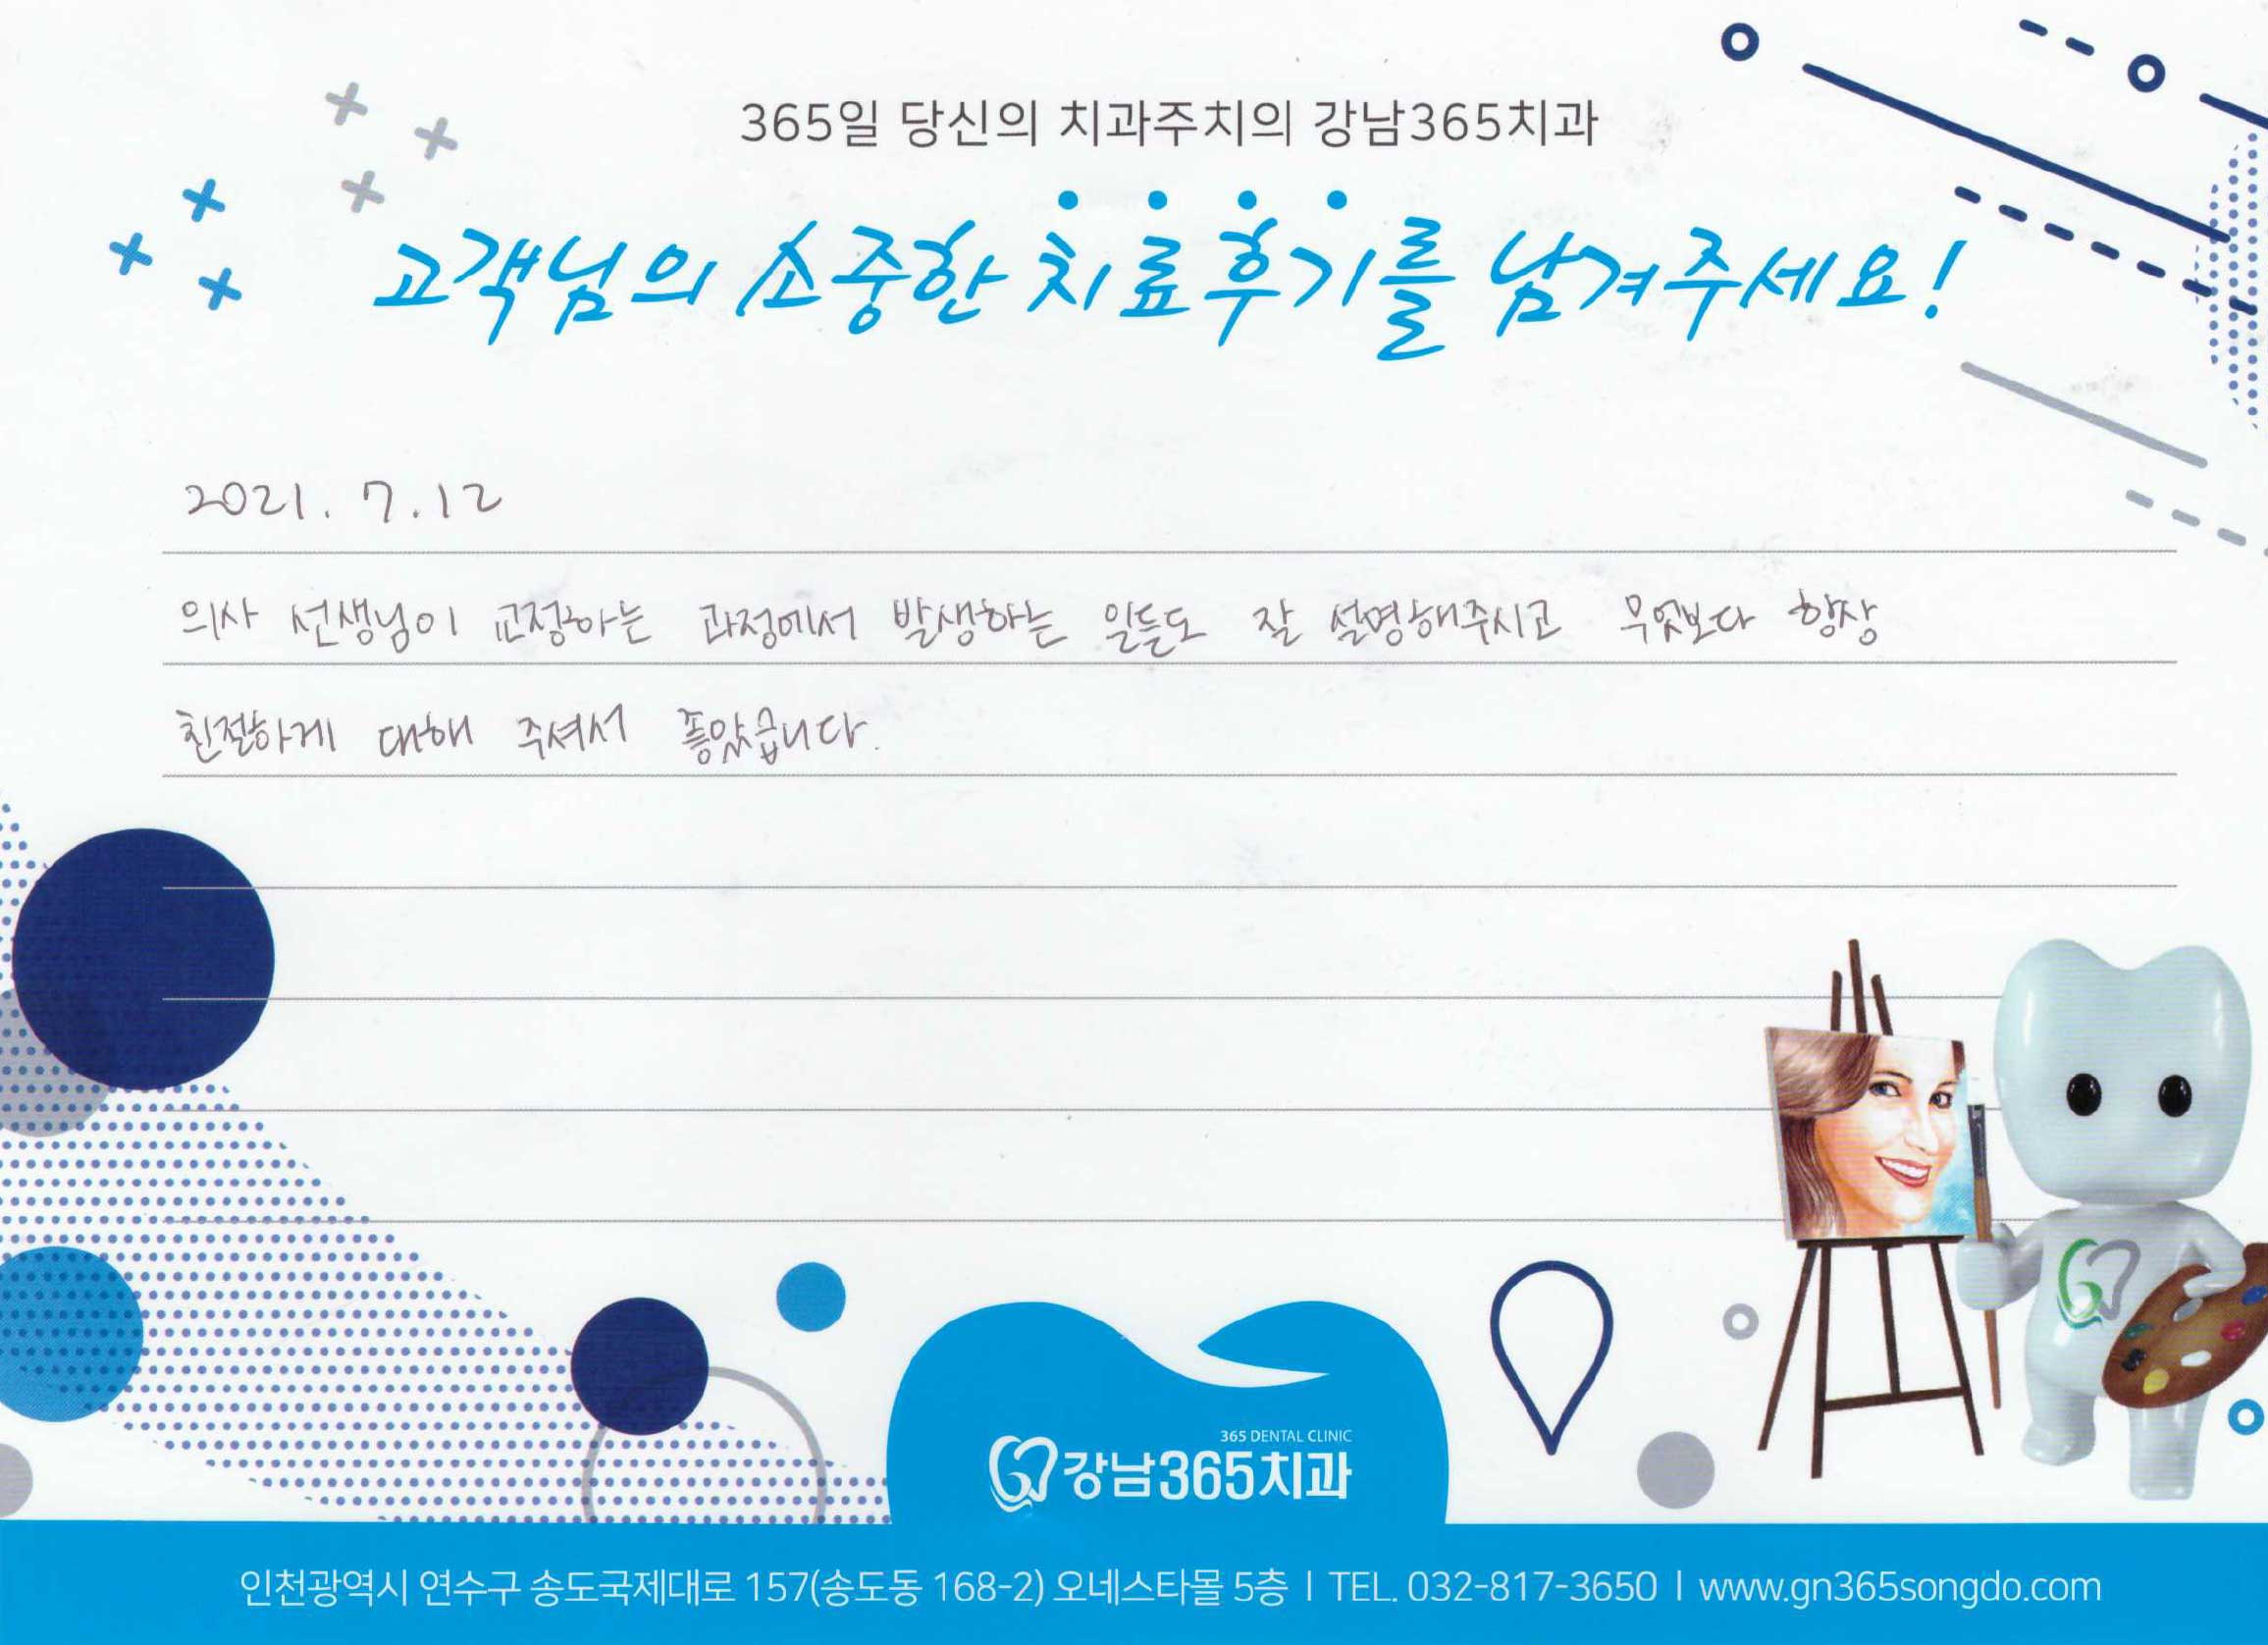 365일 당신의 치과주치의 강남365치과
고객님의 소중한 치료후기를 남겨주세요!
2021. 7.12
의사 선생님이 교정하는 과정에서 발생하는 일들도 잘 설명해주시고 무엇보다 항상
친절하게 대해 주셔서 좋았습니다.
365 DENTAL CLINIC
강남365치과
인천광역시 연수구 송도국제대로 157(송도동 168-2) 오네스타몰 5층 | TEL. 032-817-3650 | www.gn365songdo.com